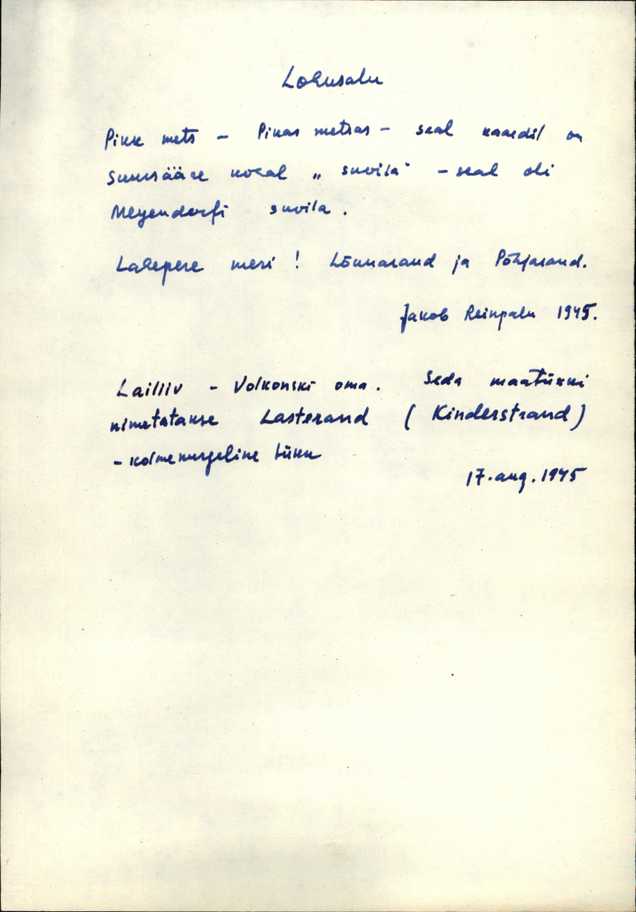 Lohusalu
Pikk mets – Pikas metsas – seal kaardil on
Suursääre kocal „ suvila" – seal oli
Meyendorfi suvila.
Lahepere meri ! Lõunarand ja Põhjarand.
Jakob Reinpalu 1945.
Lailiiv – Volkonski oma. Seda maatükki
nimetatakse Lasterand ( Kinderstrand )
– kolmenurgeline tükk
17. aug. 1945